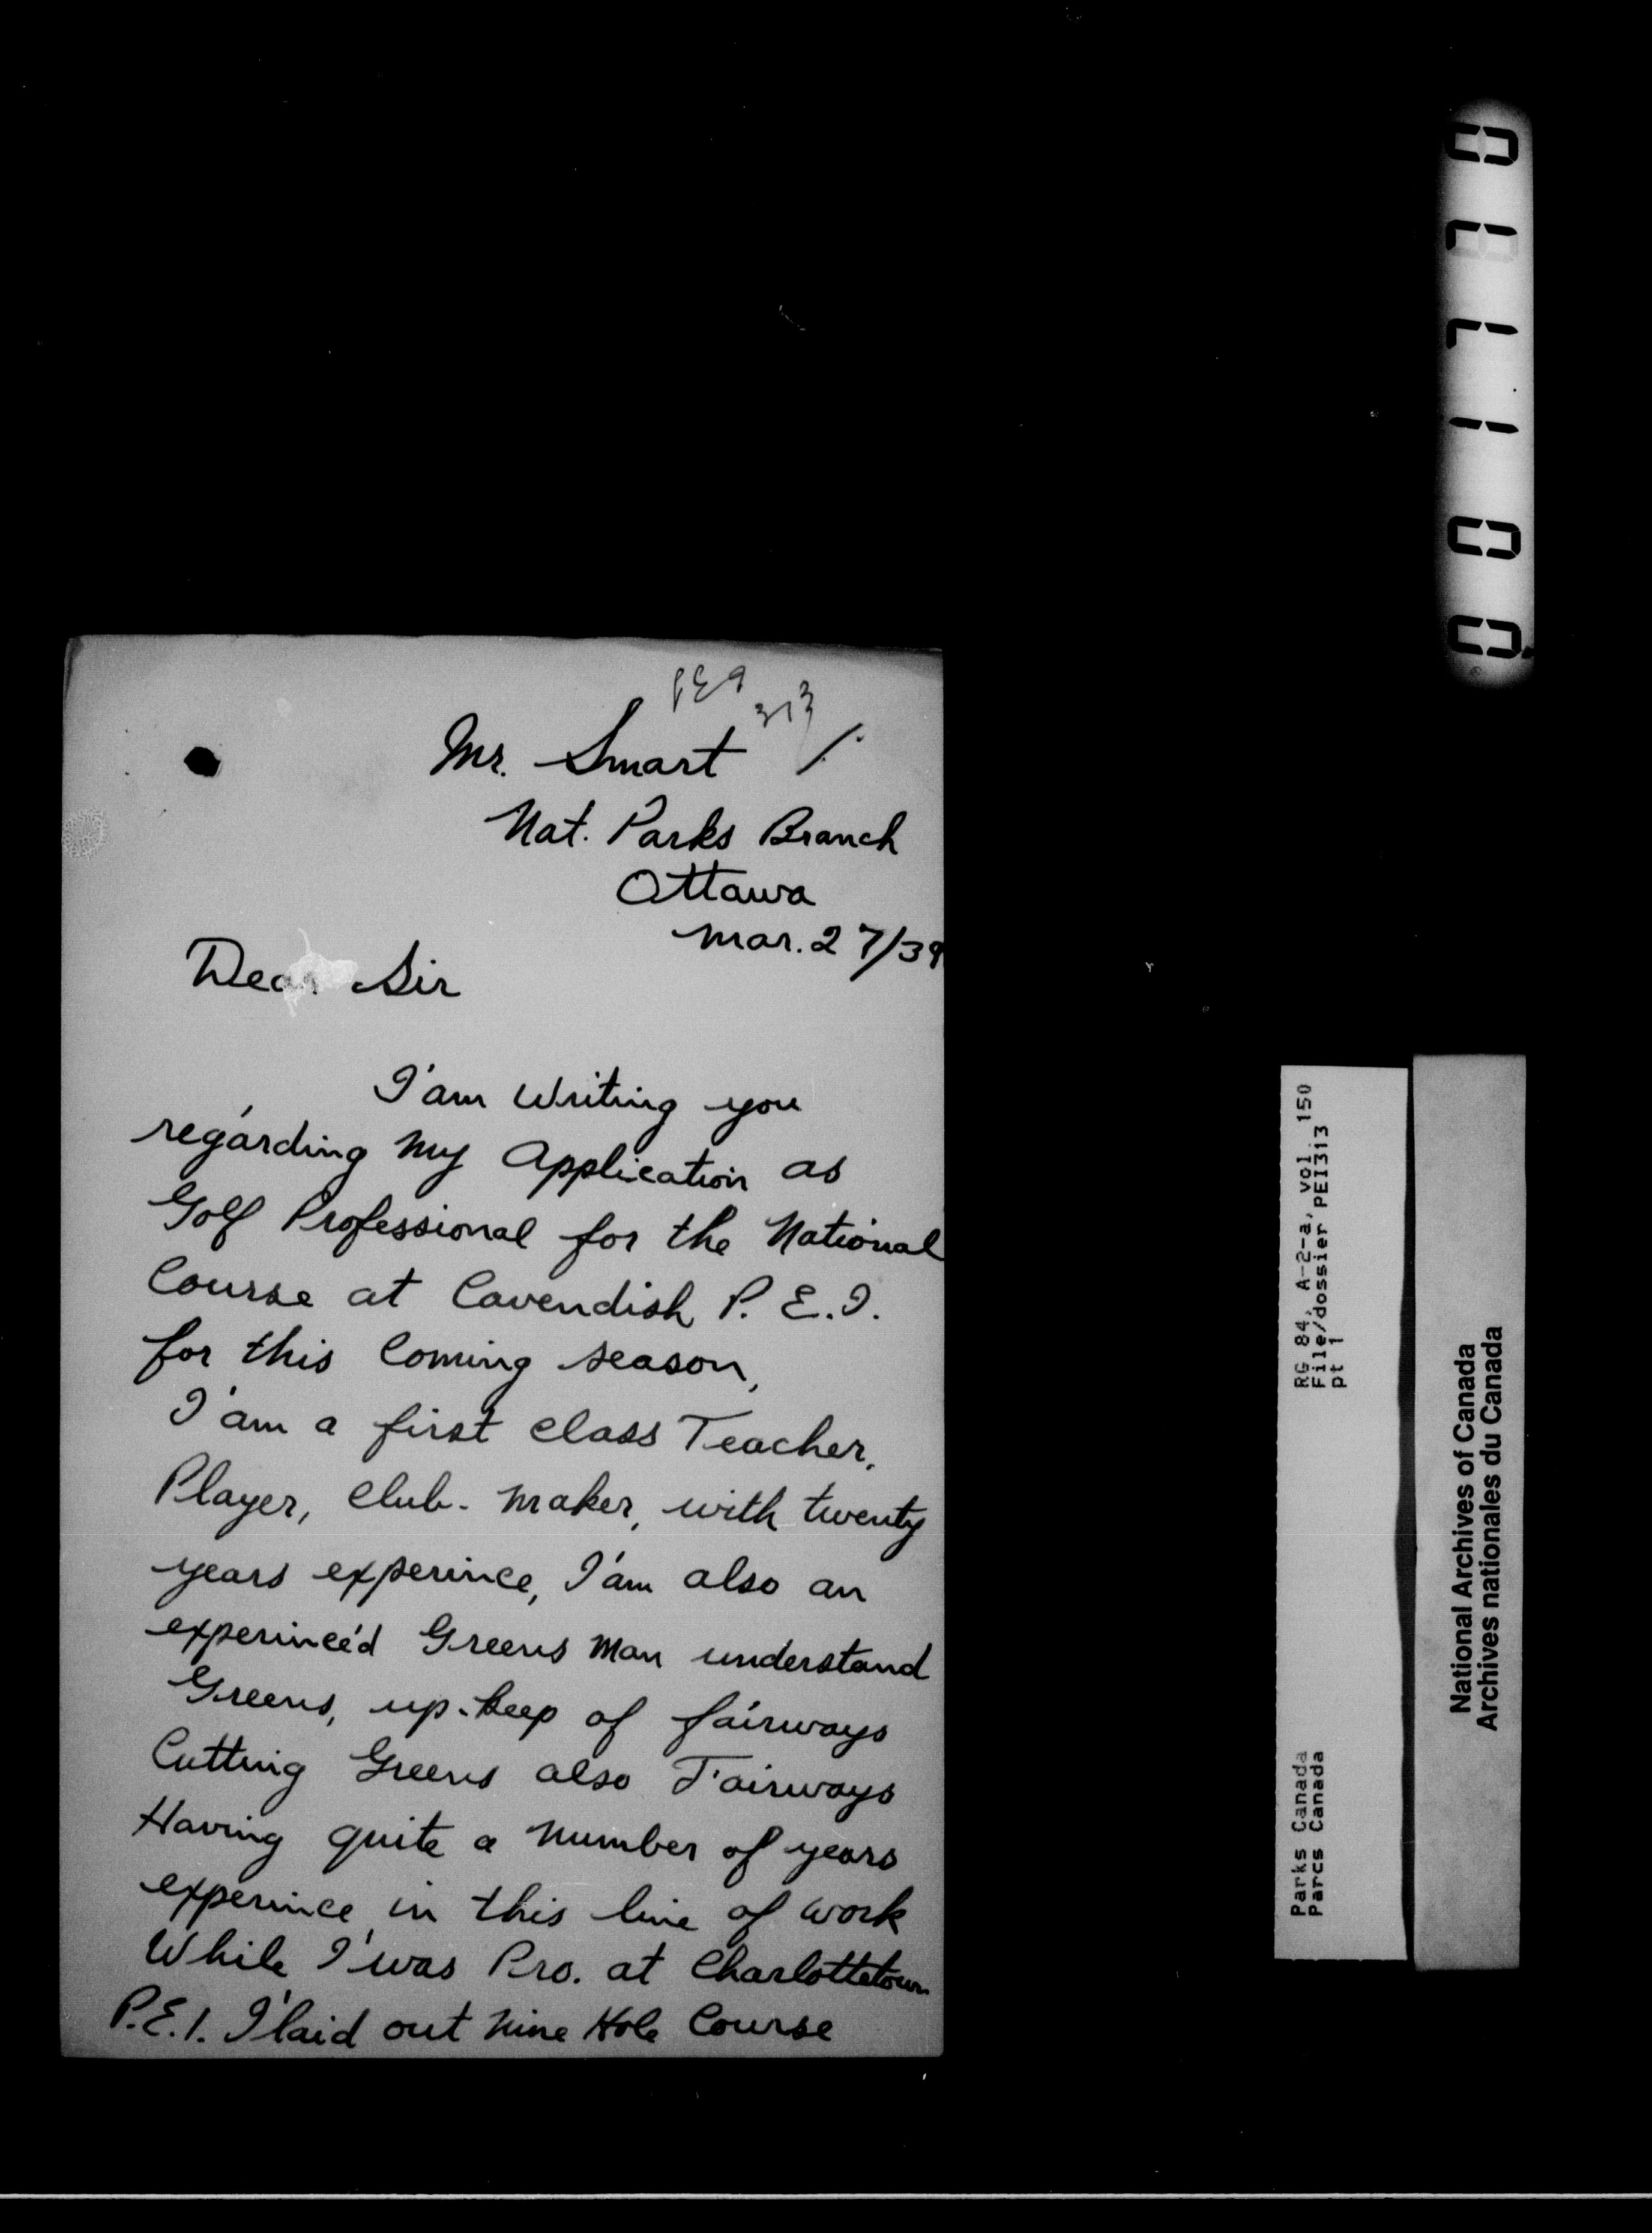 PE9
313
Mr. Smart 1.
Nat. Parks Branch
Ottawa
Mar. 27/39
Dear Sir
I'am Writing you
regarding My Application as
Golf Professional for the National
Course at Cavendish P. E. I.
for this Coming season,
I'am a first Class Teacher,
Player, Club-maker, with twenty
years experince, I'am also an
experince'd Greens Man understand
Greens, up-keep of fairways
Cutting Greens also Fairways
Having quite a Number of years
experince in this line of work
While I'was Pro. at Charlottetown
P.E.I. I'laid out Nine Hole Course
001770
RG 84, A-2-a, vol. 150
File/dossier PEI313
pt 1
Parks Canada
Parcs Canada
National Archives of Canada
Archives nationales du Canada